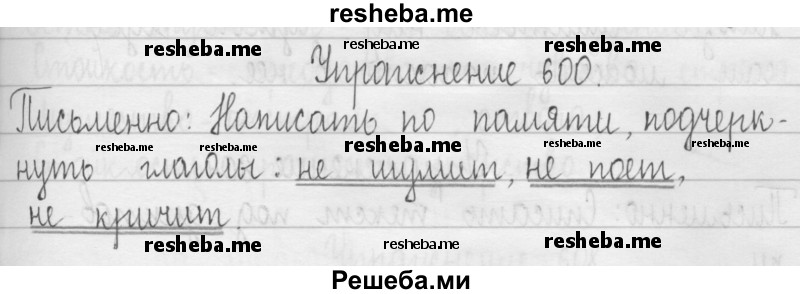 resheba.me
resheba.me resheba.me resheba.me
Упражнение 600.
Письменно: Написать по памяти, подчерк-
resheba.me resheba.me resheba.me resheba.me
нуть глаголы: не шумит, не поет,
не кричит
resheba.me resheba.me resheba.me
Решеба.ми